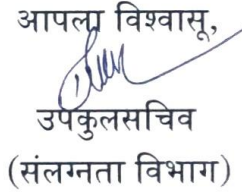 आपला विश्वासू,
उपकुलसचिव
(संलग्नता विभाग)